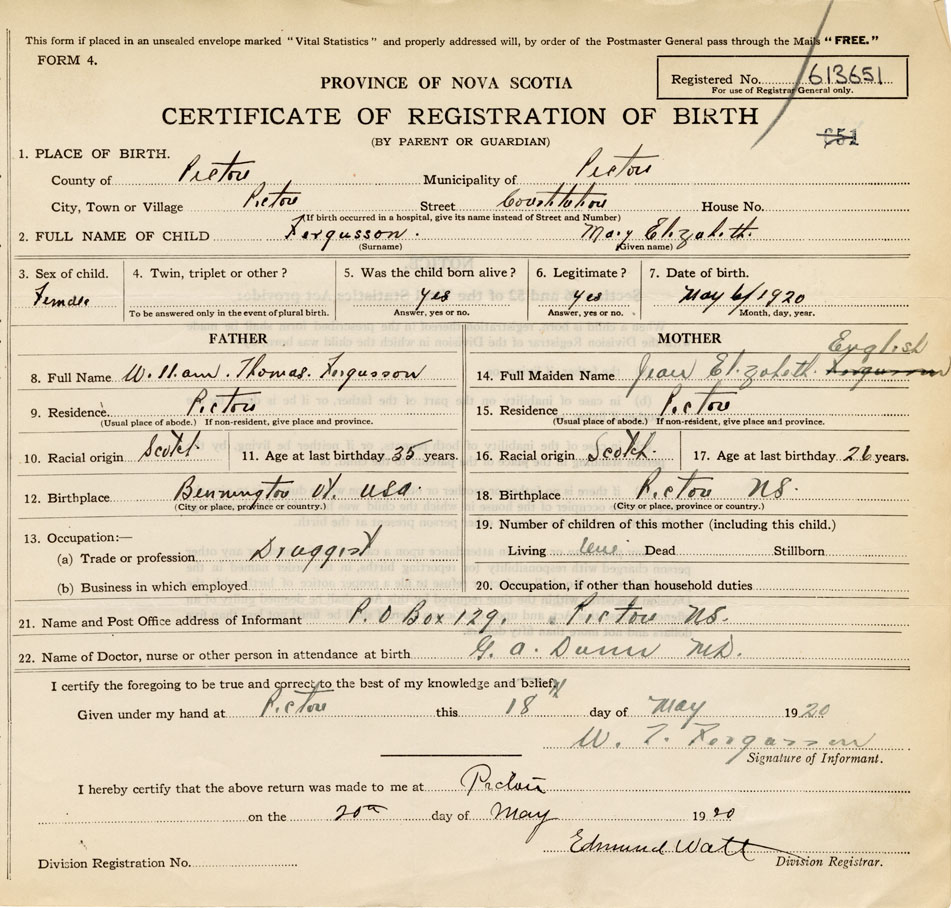 This form if placed in an unsealed envelope marked "Vital Statistics" and properly addressed will, by order of the Postmaster General pass through the Mails "FREE."
FORM 4.
Registered No. 613651
For use of Registrar General only.
PROVINCE OF NOVA SCOTIA
CERTIFICATE OF REGISTRATION OF BIRTH
(BY PARENT OR GUARDIAN)
651
1. PLACE OF BIRTH.
County of Pictou Municipality of Pictou
City, Town or Village Pictou Street Constitution House No.
(If birth occurred in a hospital, give its name instead of Street and Number)
2. FULL NAME OF CHILD Fergusson. Mary Elizabeth.
(Surname) (Given name)
3. Sex of child. 4. Twin, triplet or other? 5. Was the child born alive? 6. Legitimate? 7. Date of birth.
Female yes yes May 6/1920
To be answered only in the event of plural birth. Answer, yes or no. Answer, yes or no. Month, day, year.
FATHER
8. Full Name William. Thomas. Fergusson
9. Residence. Pictou
(Usual place of abode.) If non-resident, give place and province.
10. Racial origin Scotch. 11. Age at last birthday 35 years.
12. Birthplace Bennington Vt. USA.
(City or place, province or country.)
13. Occupation:—
(a) Trade or profession Druggist
(b) Business in which employed
MOTHER
English
14. Full Maiden Name Jean Elizabeth. Fergusson
15. Residence Pictou
(Usual place of abode.) If non-resident, give place and province.
16. Racial origin Scotch. 17. Age at last birthday 26 years.
18. Birthplace Pictou NS.
(City or place, province or country.)
19. Number of children of this mother (including this child.)
Living Dead Stillborn
20. Occupation, if other than household duties
21. Name and Post Office address of Informant P.O Box 129. Pictou NS.
22. Name of Doctor, nurse or other person in attendance at birth G. A. Dunn MD.
I certify the foregoing to be true and correct to the best of my knowledge and belief.
Given under my hand at Pictou this 18th day of May 1920
W. T. Fergusson
Signature of Informant.
I hereby certify that the above return was made to me at Pictou
on the 20th day of May 1920
Edmund Watt
Division Registration No. Division Registrar.